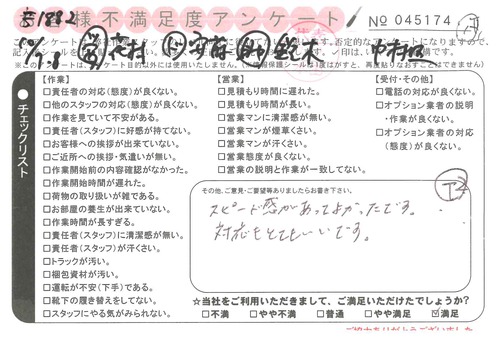 様不満足度アンケート
No 045174
【作業】
□責任者の対応(態度)が良くない。
□他のスタッフの対応(態度)が良くない。
□作業を見ていて不安がある。
□責任者(スタッフ)に好感が持てない。
□お客様への挨拶が出来ていない。
□ご近所への挨拶・気遣いが無い。
□作業開始前の内容確認がなかった。
□作業開始時間が遅れた。
□荷物の取り扱いが雑である。
□お部屋の養生が出来ていない。
□作業時間が長すぎる。
□責任者(スタッフ)に清潔感が無い。
□責任者(スタッフ)が汗くさい。
□トラックが汚い。
□梱包資材が汚い。
□運転が安(下手)である。
□靴下の履き替えをしてない。
□スタッフにやる気がみられない。
チェックリスト
【営業】
□見積もり時間に遅れた。
□見積もり時間が長い。
□営業マンに清潔感が無い。
□営業マンが煙草くさい。
□営業マンが汗くさい。
□営業態度が良くない。
□営業の説明と作業が一致してない。
【受付・その他】
□電話の対応が良くない。
□オプション業者の説明
・作業が良くない。
□オプション業者の対応
(態度)が良くない。
その他、ご意見・ご要望等ありましたらお書き下さい。
スピード感があってよかったです。
対応もとてもいいです。
☆当社をご利用いただきまして、ご満足いただけたでしょうか?
□不満 □やや不満 □普通 □やや満足 ☑満足
ご協力ありがとうございました